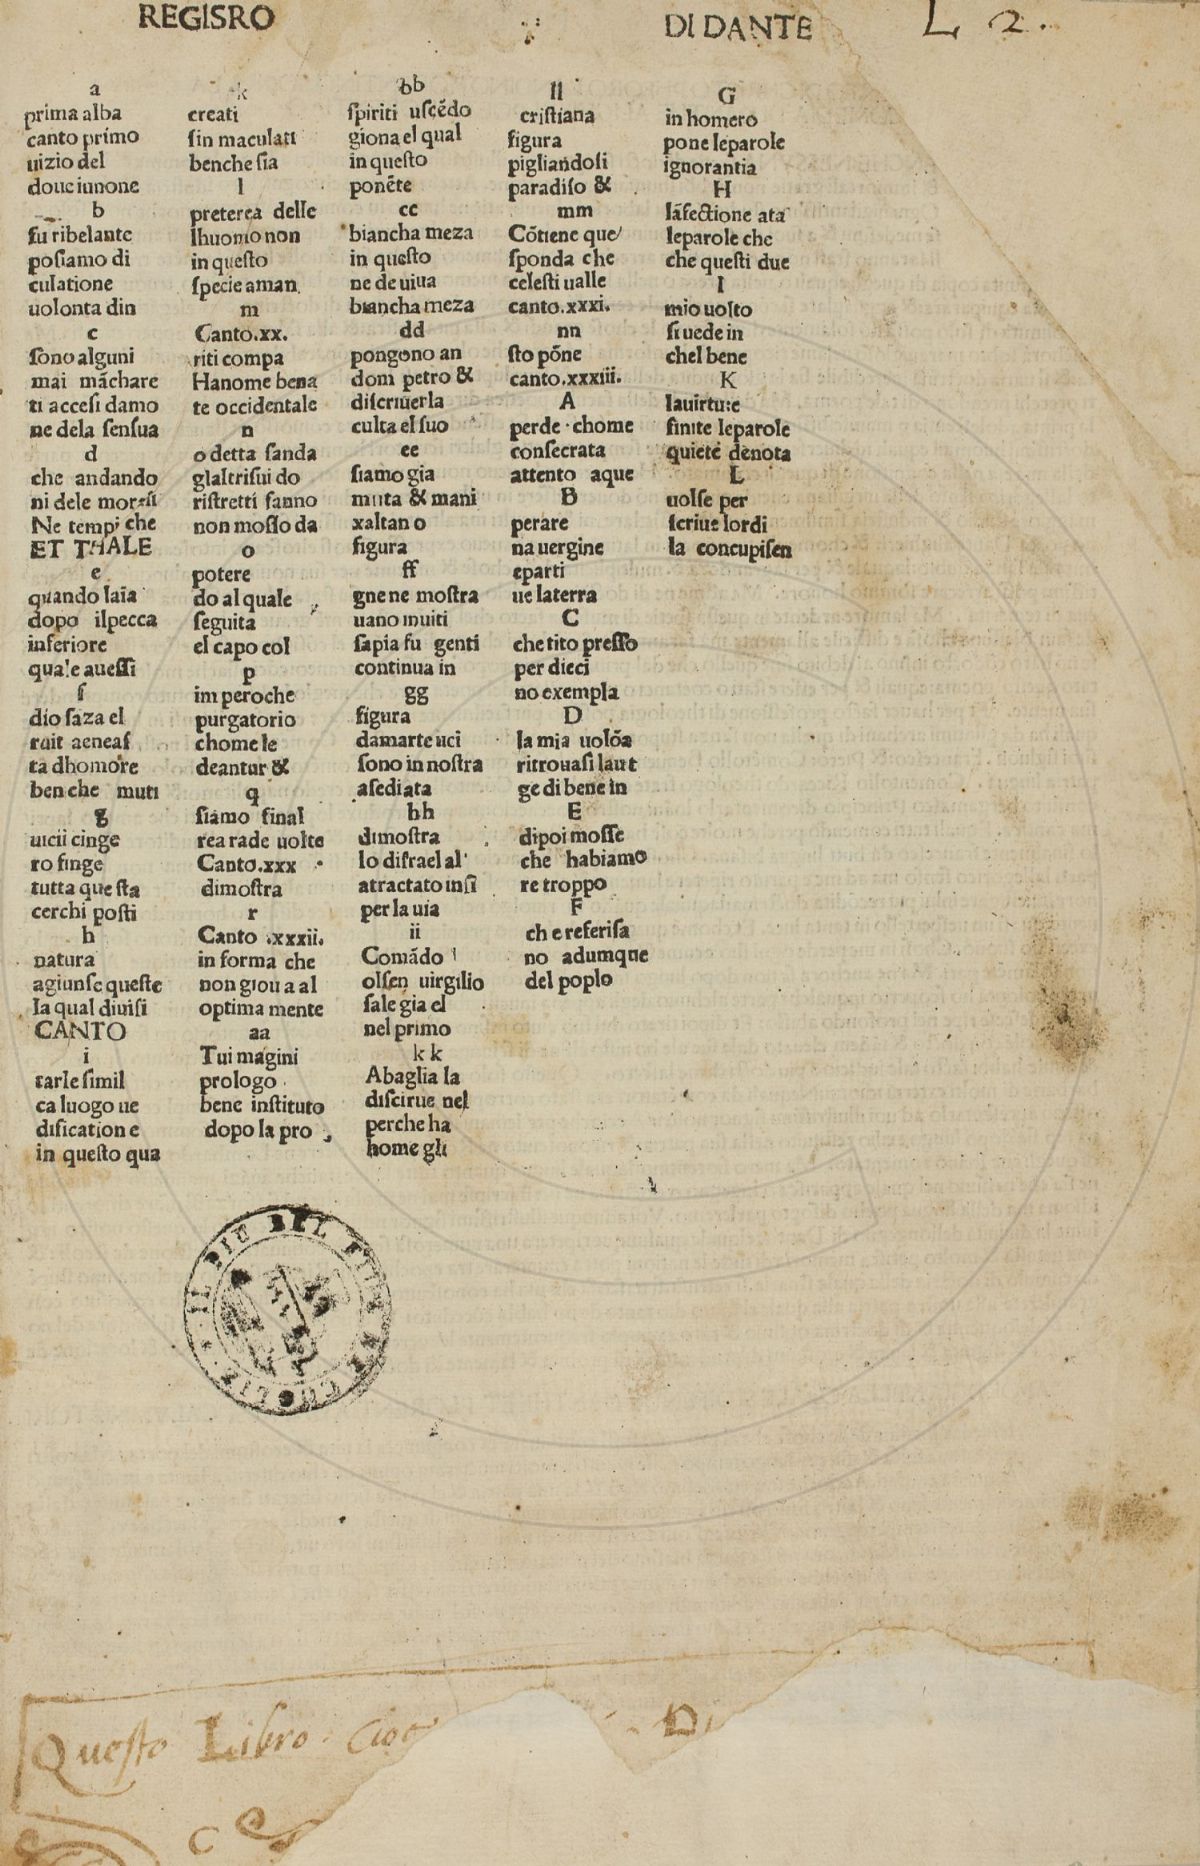 REGISRO DI DANTE L 2.
a
prima alba
canto primo
uizio del
doue iunone
b
fu ribelante
posiamo di
culatione
uolonta din
c
sono alguni
mai mãchare
ti accesi damo
ne dela sensua
d
che andando
ni dele moresti
Ne tempi che
ET THALE
e
quando laĩa
dopo ilpecca
inferiore
quale auessi
f
dio saza el
ruit aeneas
ta dhomore
ben che muti
g
uicii cinge
ro finge
tutta questa
cerchi posti
h
natura
agiunse queste
la qual diuisi
CANTO
i
tarle simil
ca luogo ue
dificatione
in questo qua
k
creati
sin maculati
benche sia
l
preterea delle
lhuomo non
in questo
specie aman
m
Canto.xx.
riti compa
Hanome bena
te occidentale
n
o detta sanda
glaltrisui do
ristretti fanno
non mosso da
o
potere
do al quale
seguita
el capo col
p
im peroche
purgatorio
chome le
deantur &
q
siamo final
rea rade uolte
Canto.xxx
dimostra
r
Canto .xxxii.
in forma che
non gioua al
optima mente
aa
Tui magini
prologo
bene instituto
dopo la pro
bb
spiriti uscẽdo
giona el qual
in questo
ponẽte
cc
biancha meza
in questo
ne de uiua
biancha meza
dd
pongono an
dom petro &
discriuerla
culta el suo
ee
siamo gia
muta & mani
xaltano
figura
ff
gnene mostra
uano muiti
sapia fu genti
continua in
gg
figura
damarte uci
sono in nostra
asediata
hh
dimostra
lo disrael al
atractato insi
per la uia
ii
Comãdo
olsen uirgilio
sale gia el
nel primo
k k
Abaglia la
discirue nel
perche ha
home gli
ll
cristiana
figura
pigliandosi
paradiso &
mm
Cõtiene que/
sponda che
celesti ualle
canto.xxxi.
nn
sto põne
canto.xxxiii.
A
perde chome
consecrata
attento aque
B
perare
na uergine
eparti
ue laterra
C
che tito presso
per dieci
no exempla
D
la mia uolõa
ritrouasi laut
ge di bene in
E
dipoi mosse
che habiamo
re troppo
F
ch e referisa
no adumque
del poplo
G
in homero
pone leparole
ignorantia
H
lãfectione ata
leparole che
che questi due
I
mio uolto
si uede in
chel bene
K
lauirtute
finite leparole
quiete denota
L
uolse per
scriue lordi
la concupisen
IL PIE DEL
Questo Libro